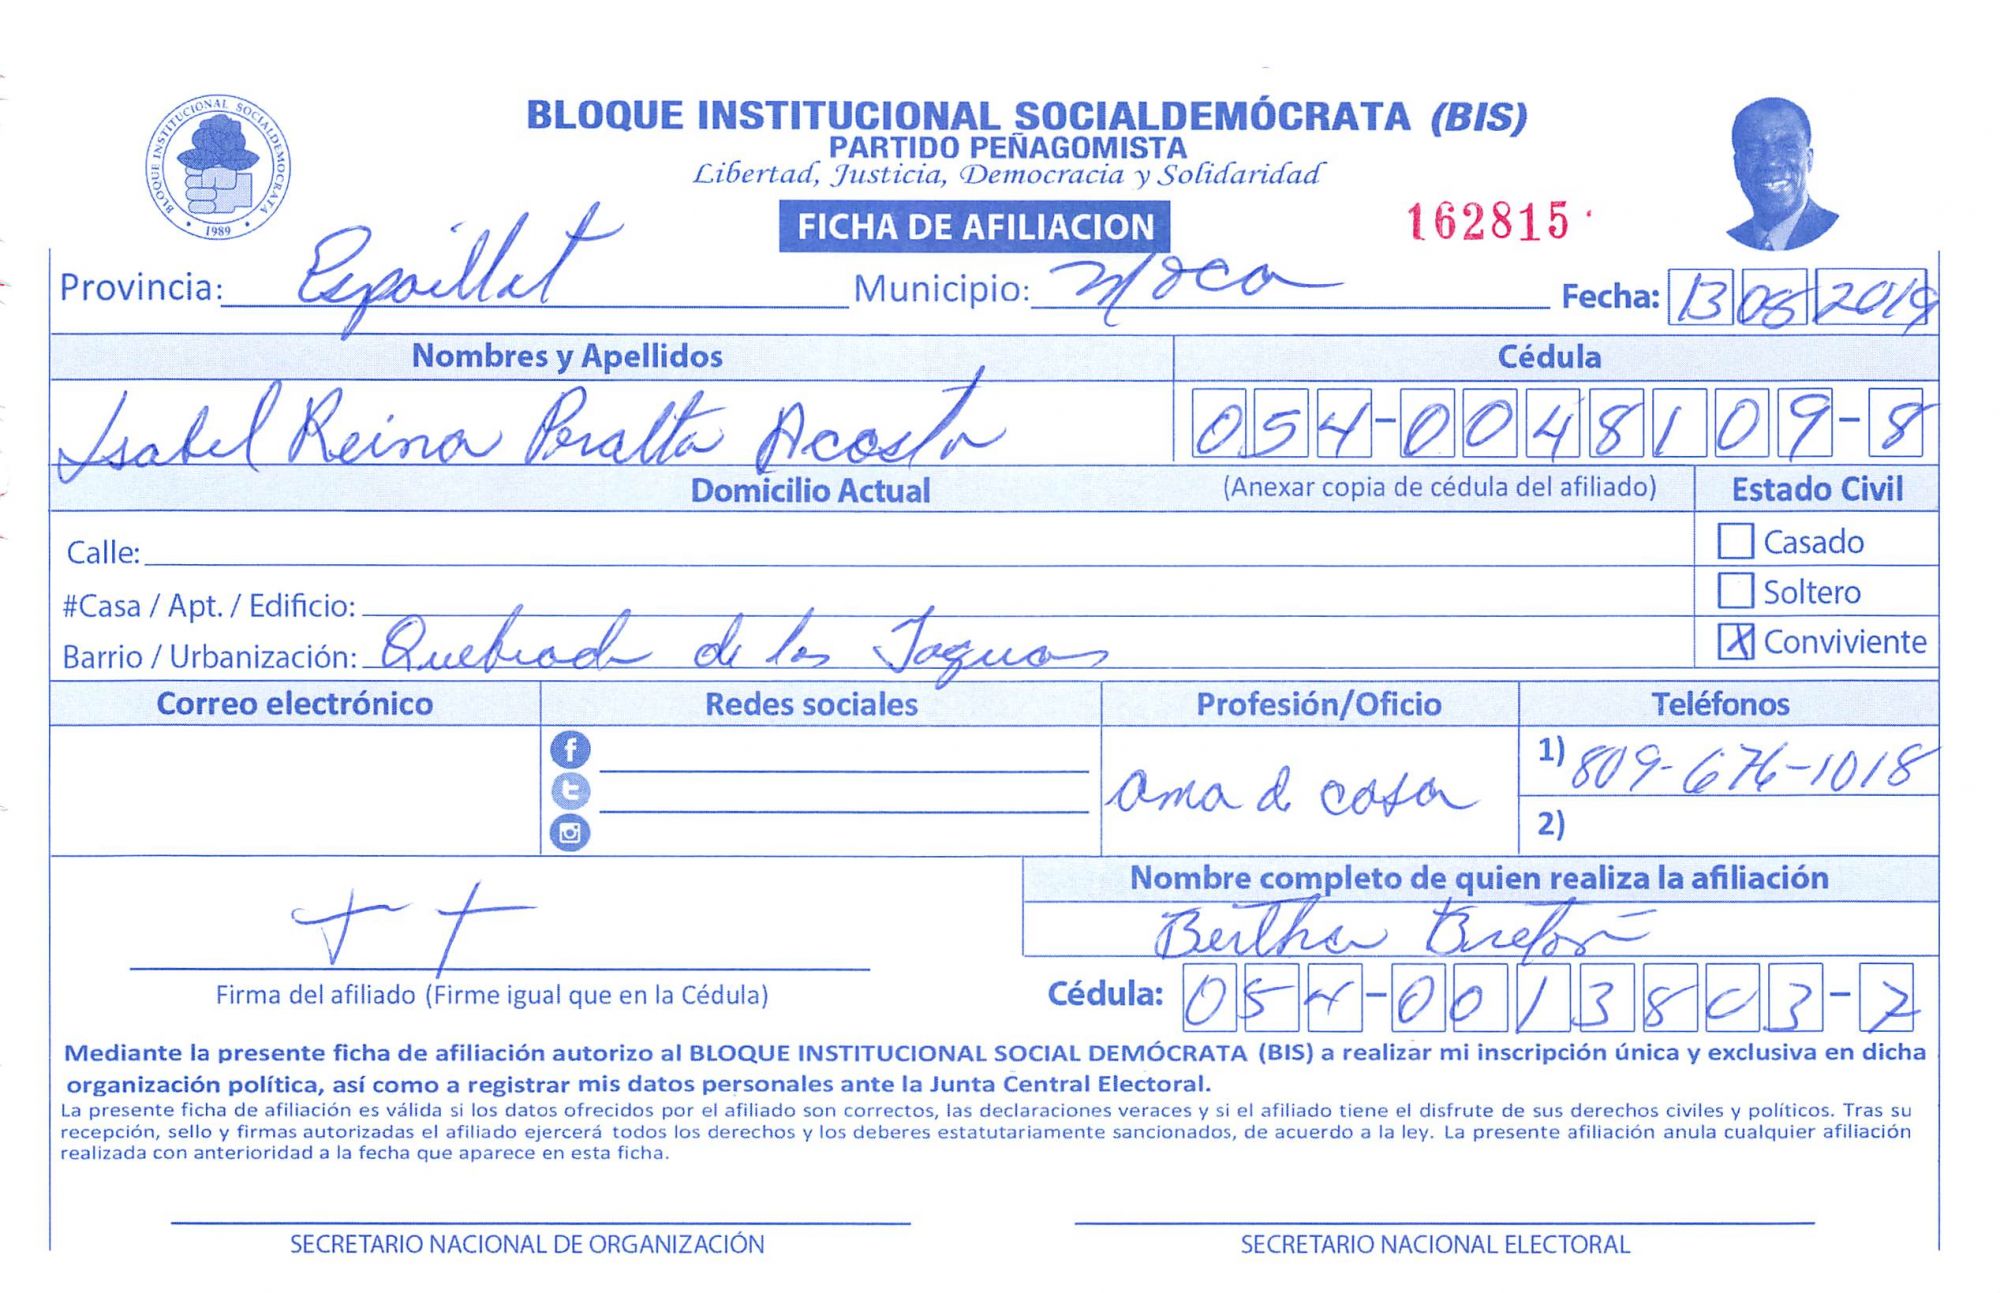 BLOQUE INSTITUCIONAL SOCIALDEMOCRATA
1989
BLOQUE INSTITUCIONAL SOCIALDEMÓCRATA (BIS)
PARTIDO PEÑAGOMISTA
Libertad, Justicia, Democracia y Solidaridad
FICHA DE AFILIACION
162815
Provincia: Espaillat Municipio: Moca Fecha: 13 08 2019
Nombres y Apellidos Cédula
Isabel Reina Peralta Acosta 054-0048109-8
Domicilio Actual (Anexar copia de cédula del afiliado) Estado Civil
Calle: Casado
#Casa / Apt. / Edificio: Soltero
Barrio / Urbanización: Quebrada de las Jaguas X Conviviente
Correo electrónico Redes sociales Profesión/Oficio Teléfonos
ama d casa 1) 809-676-1018
2)
Nombre completo de quien realiza la afiliación
Bertha
Firma del afiliado (Firme igual que en la Cédula) Cédula: 054-0013803-7
Mediante la presente ficha de afiliación autorizo al BLOQUE INSTITUCIONAL SOCIAL DEMÓCRATA (BIS) a realizar mi inscripción única y exclusiva en dicha
organización política, así como a registrar mis datos personales ante la Junta Central Electoral.
La presente ficha de afiliación es válida si los datos ofrecidos por el afiliado son correctos, las declaraciones veraces y si el afiliado tiene el disfrute de sus derechos civiles y políticos. Tras su
recepción, sello y firmas autorizadas el afiliado ejercerá todos los derechos y los deberes estatutariamente sancionados, de acuerdo a la ley. La presente afiliación anula cualquier afiliación
realizada con anterioridad a la fecha que aparece en esta ficha.
SECRETARIO NACIONAL DE ORGANIZACIÓN SECRETARIO NACIONAL ELECTORAL